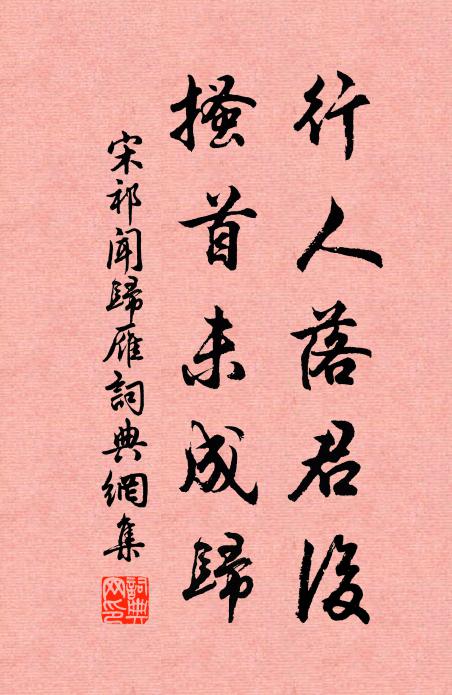 行人落君後
搔首未成歸
宋祁聞歸雁詞典網集
詞典網印